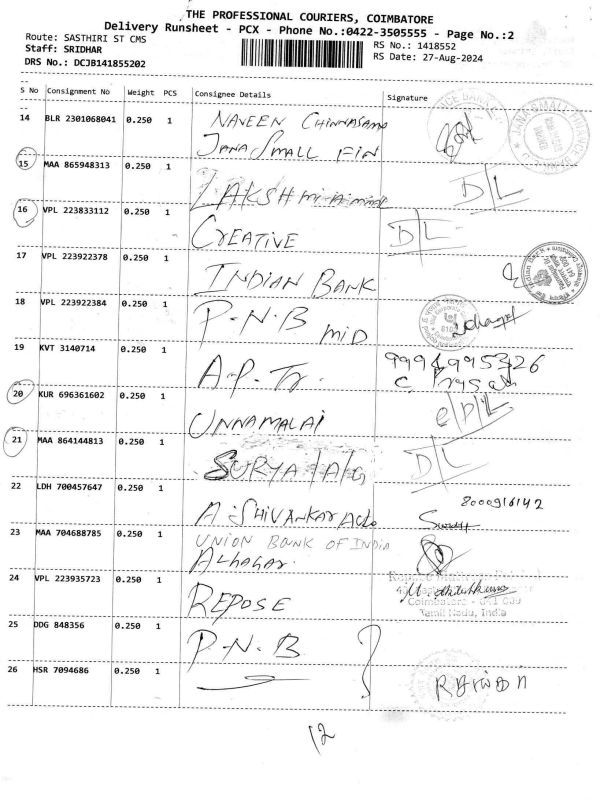 THE PROFESSIONAL COURIERS, COIMBATORE
Delivery Runsheet - PCX - Phone No.:0422-3505555 - Page No.:2
Route: SASTHIRI ST CMS
Staff: SRIDHAR
DRS No.: DCJB141855202
RS No.: 1418552
RS Date: 27-Aug-2024
S No Consignment No Weight PCS Consignee Details Signature
14 BLR 2301068041 0.250 1 NAVEEN CHINNASAMY
JANA SMALL FIN
15 MAA 865948313 0.250 1 LAKSHMI D/L
16 VPL 223833112 0.250 1 CREATIVE D/L
17 VPL 223922378 0.250 1 INDIAN BANK
18 VPL 223922384 0.250 1 P.N.B MID
19 KVT 3140714 0.250 1 A.P.Tr. 9994995326
20 KUR 696361602 0.250 1 UNNAMALAI D/L
21 MAA 864144813 0.250 1 SURYA D/L
22 LDH 700457647 0.250 1 A.SHIVANKAR 8000916142
23 MAA 704688785 0.250 1 UNION BANK OF INDIA
24 VPL 223935723 0.250 1 REPOSE
Coimbatore
Tamil Nadu, India
25 DDG 848356 0.250 1 P.N.B
26 HSR 7094686 0.250 1
12